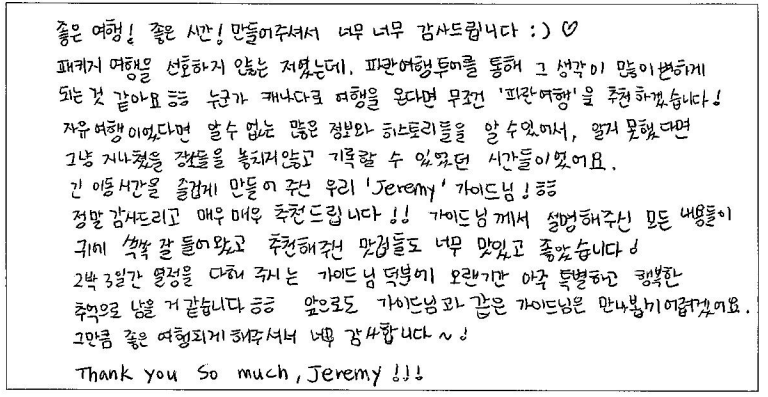 좋은 여행! 좋은 시간! 만들어주셔서 너무 너무 감사드립니다 :) ♡
패키지 여행을 선호하지 않는 저였는데, 파란여행투어를 통해 그 생각이 많이 변하게
되는 것 같아요 ㅎㅎ 누군가 캐나다로 여행을 온다면 무조건 '파란여행'을 추천하겠습니다!
자유여행이었다면 알 수 없는 많은 정보와 히스토리들을 알 수 있어서, 알지 못했다면
그냥 지나쳤을 장소들을 놓치지 않고 기록할 수 있었던 시간들이었어요.
긴 이동시간을 즐겁게 만들어 주신 우리 'Jeremy' 가이드님! ㅎㅎ
정말 감사드리고 매우 매우 추천드립니다!! 가이드님께서 설명해주신 모든 내용들이
귀에 쏙쏙 잘 들어왔고 추천해주신 맛집들도 너무 맛있고 좋았습니다!
2박 3일간 열정을 다해 주시는 가이드님 덕분에 오랜기간 아주 특별하고 행복한
추억으로 남을 거 같습니다 ㅎㅎ 앞으로도 가이드님과 같은 가이드님은 만나뵙기 어렵겠어요.
그만큼 좋은 여행되게 해주셔서 너무 감사합니다~!
Thank you so much, Jeremy!!!